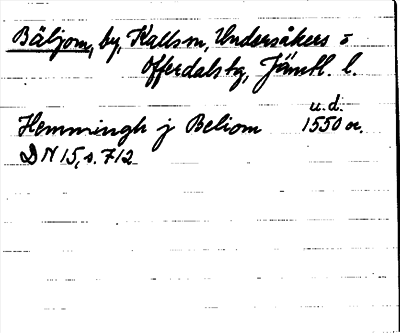 Bäljom, by, Kallsn, Undersåkers o
Offerdals tg, Jämtl. l.
u.d.
Hemmingh j Beliom 1550 or.
DN 15, s. 712